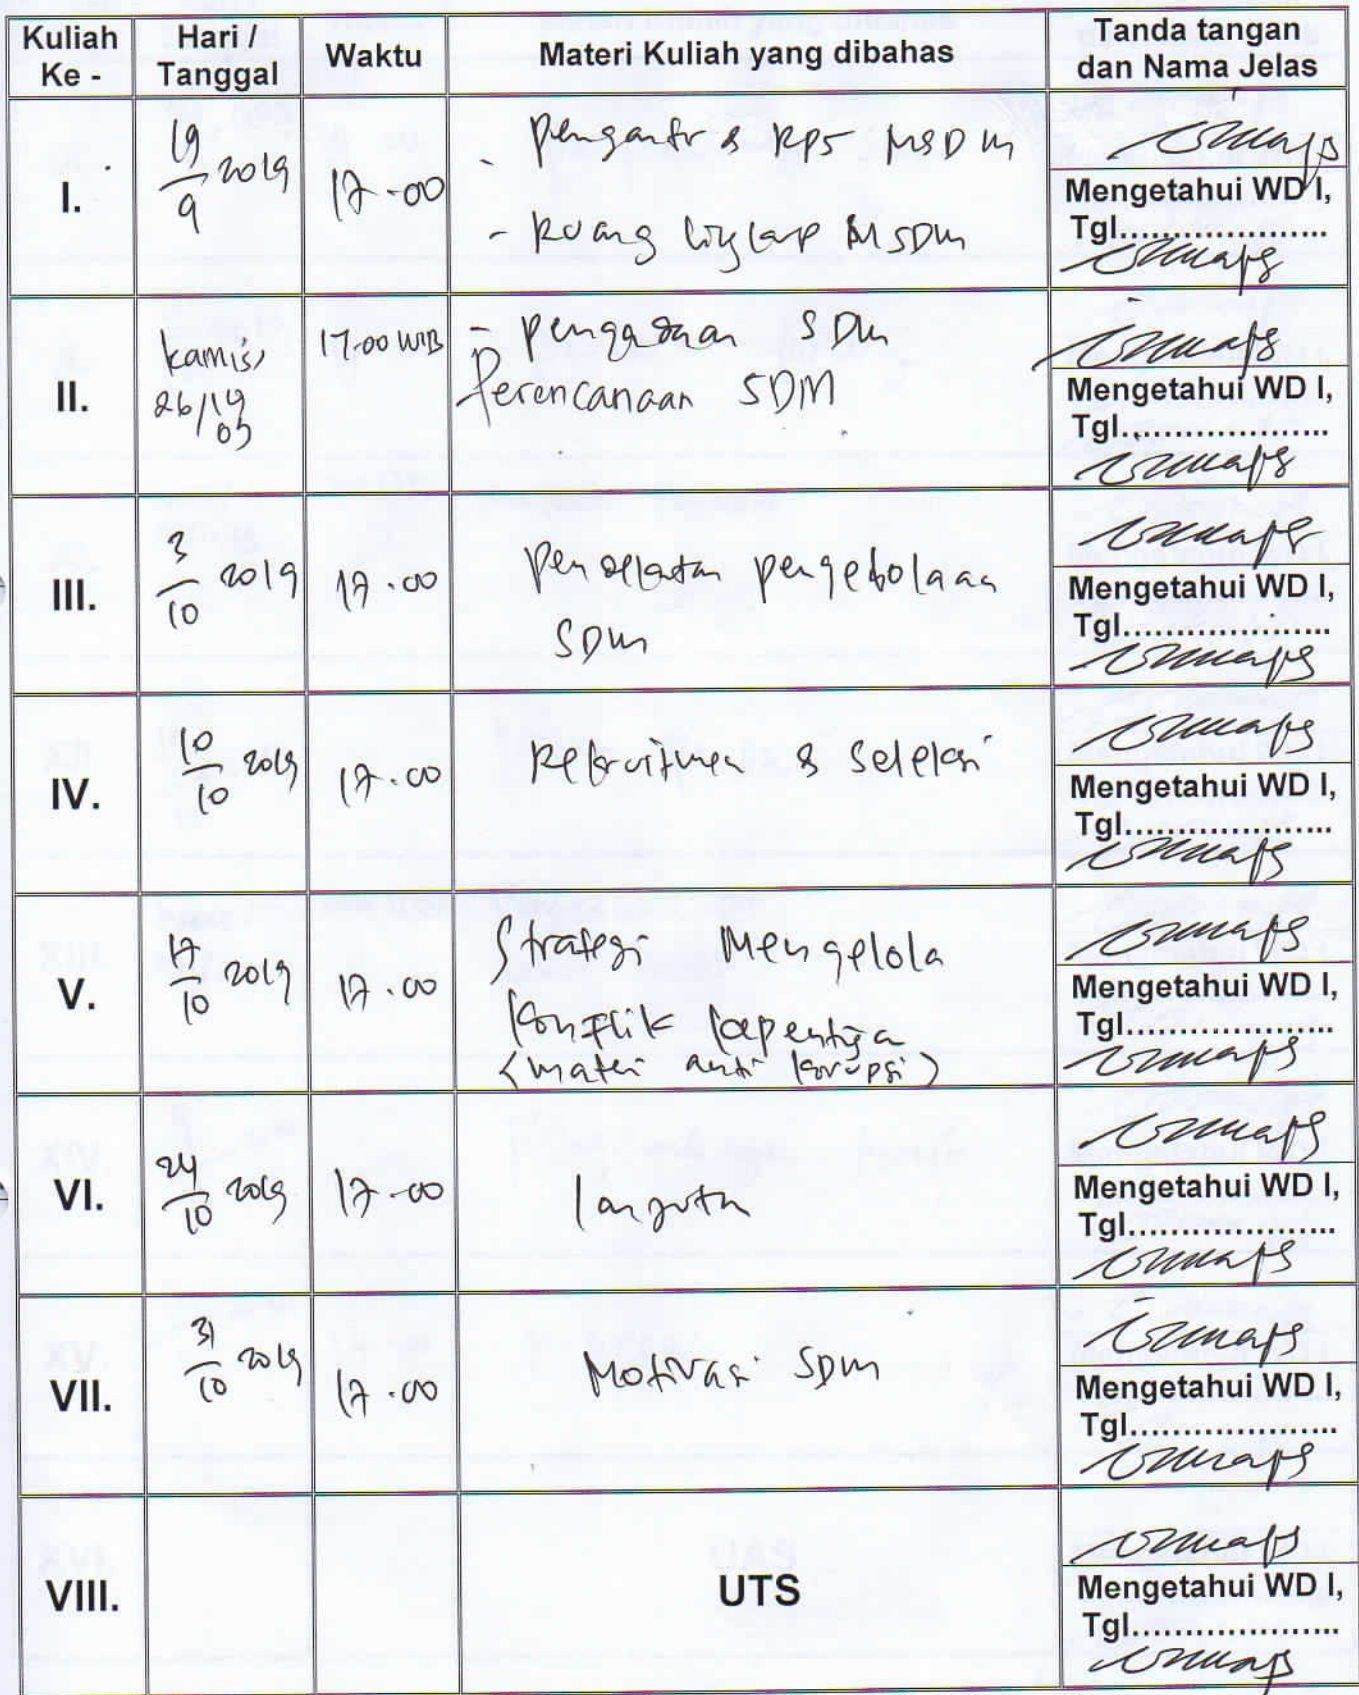 Kuliah Ke -
Hari / Tanggal
Waktu
Materi Kuliah yang dibahas
Tanda tangan dan Nama Jelas
I.
19/9 2019
17.00
- Pengantr & RPS MSDM
- Ruang lingkup MSDM
Mengetahui WD I,
Tgl....................
II.
Kamis,
26/19
09
17.00 WIB
- Pengadaan SDM
Perencanaan SDM
Mengetahui WD I,
Tgl....................
III.
3/10 2019
17.00
SDM
Mengetahui WD I,
Tgl....................
IV.
10/10 2019
17.00
Rekruitmen & Seleksi
Mengetahui WD I,
Tgl....................
V.
17/10 2019
17.00
Strategi Mengelola
Konflik kepentingan
(materi anti korupsi)
Mengetahui WD I,
Tgl....................
VI.
24/10 2019
17.00
lanjutan
Mengetahui WD I,
Tgl....................
VII.
31/10 2019
17.00
Motivasi SDM
Mengetahui WD I,
Tgl....................
VIII.
UTS
Mengetahui WD I,
Tgl....................